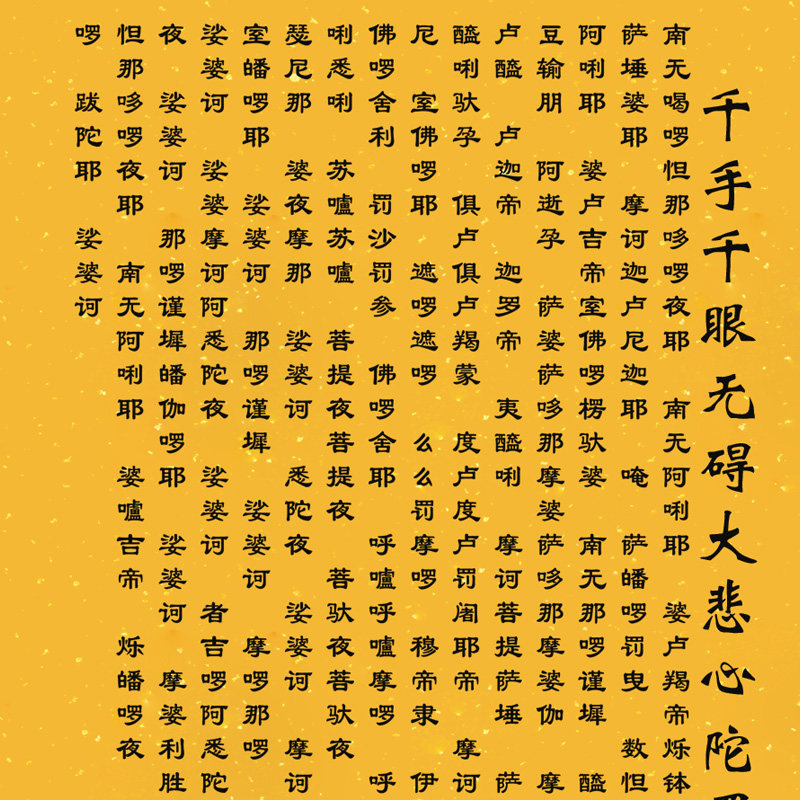 千手千眼无碍大悲心陀
南无喝啰怛那哆啰夜耶 南无阿唎耶 婆卢羯帝烁钵
萨埵婆耶 摩诃迦卢尼迦耶 唵 萨皤啰罚曳 数怛
阿唎耶 婆卢吉帝室佛啰楞驮婆 南无那啰谨墀 醯
豆输朋 阿逝孕 萨婆萨哆那摩婆萨哆那摩婆伽 摩
卢醯 卢迦帝 迦罗帝 夷醯唎 摩诃菩提萨埵 萨
醯唎驮孕 俱卢俱卢羯蒙 度卢度卢罚阇耶帝 摩诃
尼 室佛啰耶 遮啰遮啰 么么罚摩啰 穆帝隶 伊
佛啰舍利 罚沙罚参 佛啰舍耶 呼嚧呼嚧摩啰 呼
唎悉唎 苏嚧苏嚧 菩提夜菩提夜 菩驮夜菩驮夜
瑟尼那 婆夜摩那 娑婆诃 悉陀夜 娑婆诃 摩诃
室皤啰耶 娑婆诃 那啰谨墀 娑婆诃 摩啰那啰
娑婆诃 娑婆摩诃阿悉陀夜 娑婆诃 者吉啰阿悉陀
夜 娑婆诃 那啰谨墀皤伽啰耶 娑婆诃 摩婆利胜
怛那哆啰夜耶 南无阿唎耶 婆嚧吉帝 烁皤啰夜
啰 跋陀耶 娑婆诃